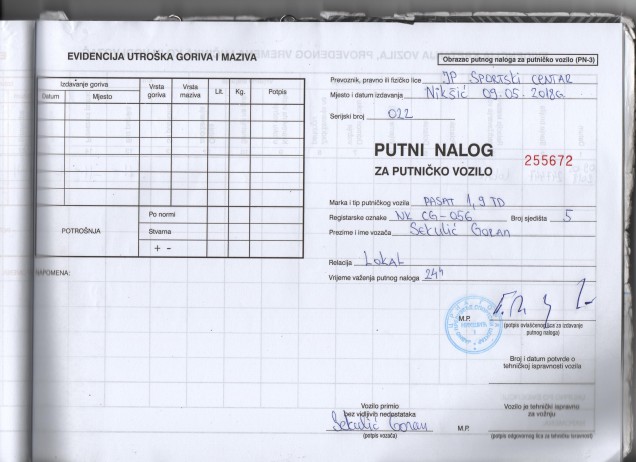 EVIDENCIJA UTROŠKA GORIVA I MAZIVA
Izdavanje goriva
Datum Mjesto
Vrsta goriva
Vrsta maziva
Lit.
Kg.
Potpis
POTROŠNJA
Po normi
Stvarna
+ -
NAPOMENA:
Obrazac putnog naloga za putničko vozilo (PN-3)
Prevoznik, pravno ili fizičko lice JP SPORTSKI CENTAR
Mjesto i datum izdavanja Nikšić 09.05.2012G
Serijski broj 022
PUTNI NALOG
ZA PUTNIČKO VOZILO
255672
Marka i tip putničkog vozila PASAT 1,9 TD
Registarske oznake NK CG-056 Broj sjedišta 5
Prezime i ime vozača Sekulić Goran
Relacija LOKAL
Vrijeme važenja putnog naloga 24h
M.P.
(potpis ovlašćenog lica za izdavanje
putnog naloga)
Broj i datum potvrde o
tehničkoj ispravnosti vozila
Vozilo primio
bez vidljivih nedostataka
Sekulić Goran
(potpis vozača)
M.P.
Vozilo je tehnički ispravno
za vožnju
(potpis odgovornog lica za tehničku ispravnost)